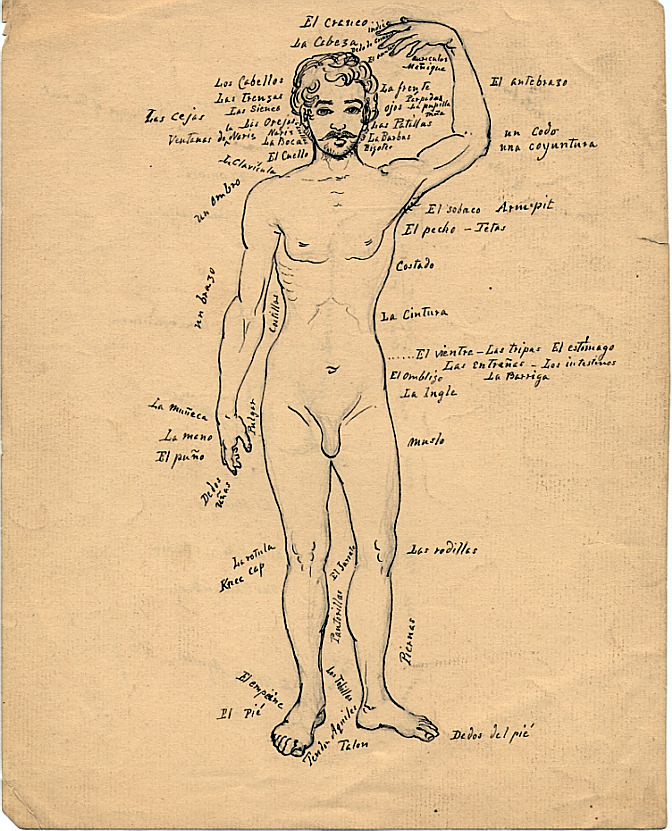 El Craneo
La Cabeza
Indice
Meñique
Los Cabellos
Las Trenzas
Las Sienes
Las Cejas
Las Orejas
Ventanas de Nariz
Nariz
La Boca
El Cuello
La Clavicula
La frente
Parpados
ojos
La pupilla
niña
Las Patillas
La Barba
Bigote
El antebrazo
un Codo
una coyuntura
un ombro
El sobaco Arm-pit
El pecho - Tetas
Costado
un brazo
Costillas
La Cintura
El vientre - Las tripas El estomago
Las entrañas - Los intestinos
El Ombligo
La Barriga
La Ingle
La muñeca
Pulgar
La mano
El puño
muslo
Dedos
uñas
La rotula
Knee cap
Las rodillas
El Jarrete
Pantorillas
Piernas
Los Tobillos
El empeine
El Pié
Tendon Aquiles
Talon
Dedos del pié